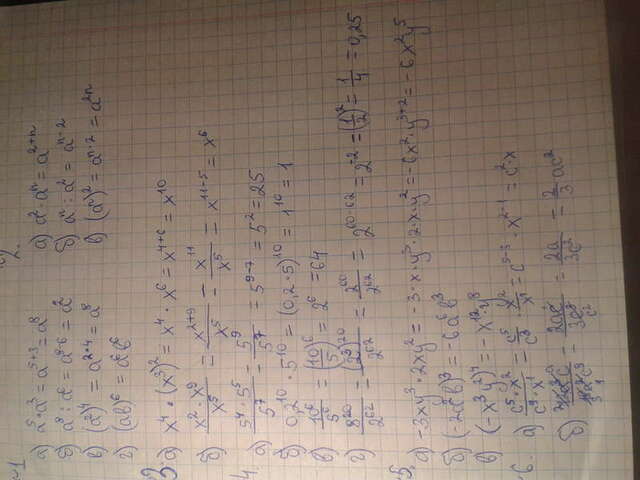 №1
а) a⁵ · a³ = a⁵⁺³ = a⁸
б) a⁸ : a⁶ = a⁸⁻⁶ = a²
в) (a²)⁴ = a²·⁴ = a⁸
г) (ab)⁶ = a⁶b⁶
2.
а) a² · aⁿ = a²⁺ⁿ
б) aⁿ : a² = aⁿ⁻²
в) (aⁿ)² = aⁿ·² = a²ⁿ
3.
а) x⁴ · (x³)² = x⁴ · x⁶ = x⁴⁺⁶ = x¹⁰
б) x² · x⁹ / x⁵ = x²⁺⁹ / x⁵ = x¹¹ / x⁵ = x¹¹⁻⁵ = x⁶
4.
а) 5⁴ · 5⁵ / 5⁷ = 5⁹ / 5⁷ = 5⁹⁻⁷ = 5² = 25
б) 0,2¹⁰ · 5¹⁰ = (0,2 · 5)¹⁰ = 1¹⁰ = 1
в) 10⁶ / 5⁶ = (10/5)⁶ = 2⁶ = 64
г) 8²⁰ / 2⁶² = (2³)²⁰ / 2⁶² = 2⁶⁰ / 2⁶² = 2⁶⁰⁻⁶² = 2⁻² = (1/2)² = 1/4 = 0,25
5.
а) -3xy³ · 2xy² = -3 · x · y³ · 2 · x · y² = -6x² · y³⁺² = -6x²y⁵
в) = -x¹²y⁸
6.
а) c⁵ · x² / c³ · x¹ = c⁵/c³ · x²/x¹ = c⁵⁻³ · x²⁻¹ = c² · x